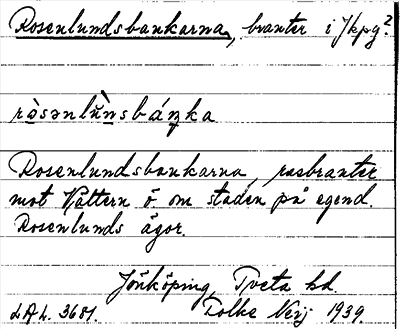 Rosenlundsbankarna, branter i Jkpg?
ròsənlùnsbáŋka
Rosenlundsbankarna, rasbranter
mot Vättern ö om staden på egend.
Rosenlunds ägor.
Jönköping, Tveta hd.
LAL. 3681. Folke Neij 1939.